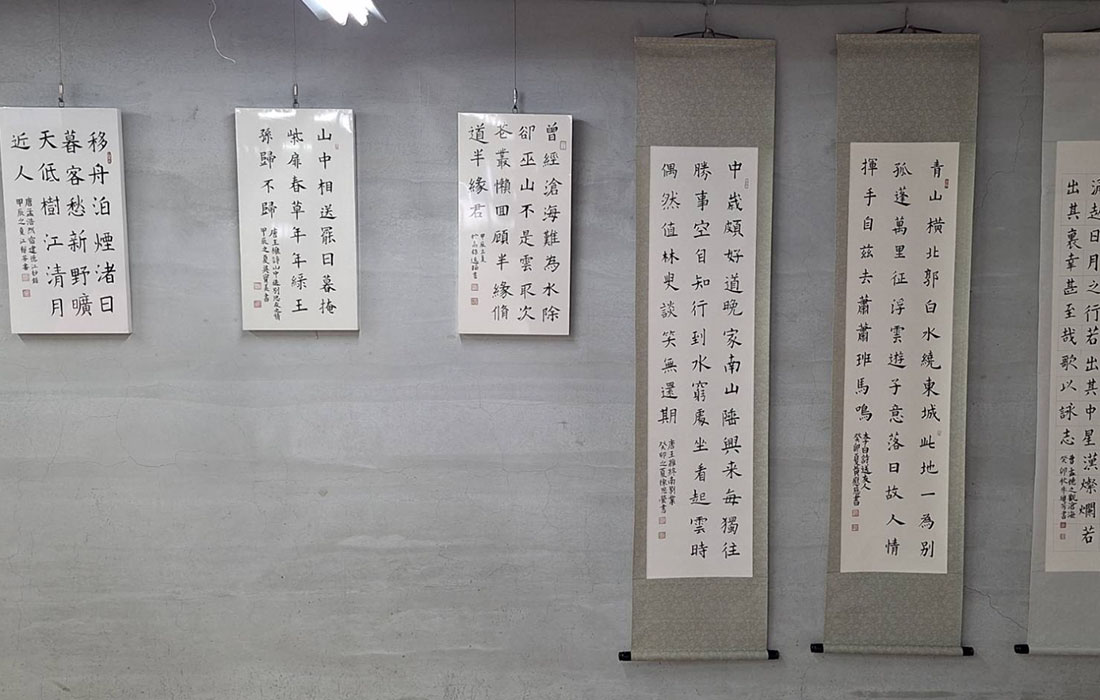 移舟泊煙渚日
暮客愁新野曠
天低樹江清月
近人
唐孟浩然宿建德江抄錄
甲辰之夏江
山中相送罷日暮掩
柴扉春草年年綠王
孫歸不歸
唐王維詩山中送別
甲辰之夏吳寶美書
曾經滄海難為水除
卻巫山不是雲取次
花叢懶回顧半緣脩
道半緣君
甲辰之夏
中歲頗好道晚家南山陲興来每獨往
勝事空自知行到水窮處坐看起雲時
偶然值林叟談笑無還期
唐王維終南別業
癸卯之夏徐
青山橫北郭白水繞東城此地一為別
孤蓬萬里征浮雲遊子意落日故人情
揮手自茲去蕭蕭班馬鳴
李白詩送友人
癸卯夏
起日月之行若出其中星漢燦爛若
出其裏幸甚至哉歌以詠志
曹孟德之觀滄海
癸卯秋